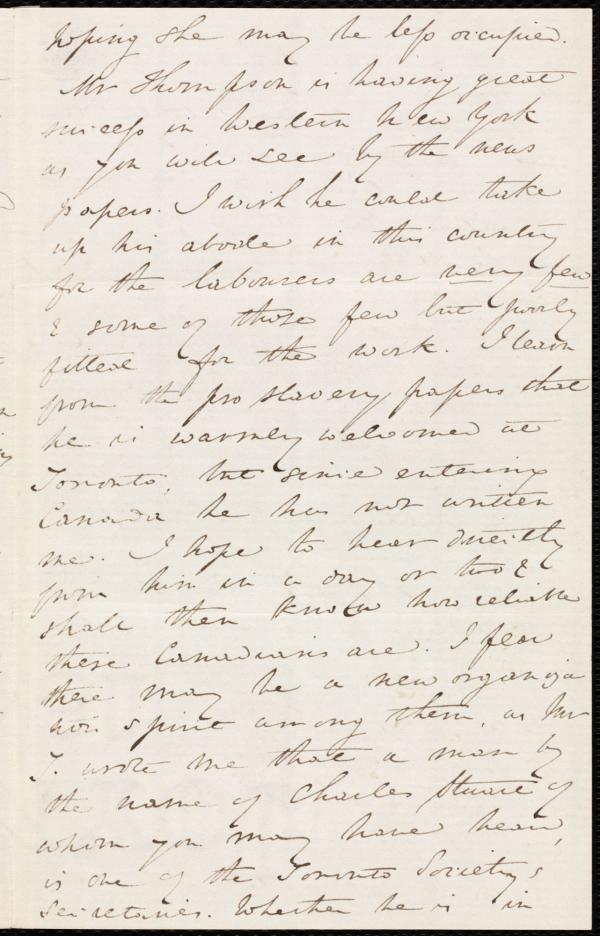 hoping she may be less occupied.
Mr Thompson is having great
success in Western New York
as you will see by the news
papers. I wish he could take
up his abode in this country
for the labourers are very few
& some of those few but poorly
fitted for the work. I learn
from the pro slavery papers that
he is warmly welcomed at
Toronto, but since entering
Canada he has not written
me. I hope to hear directly
from him in a day or two &
shall then know how reliable
these Canadians are. I fear
there may be a new organiza
tion spirit among them, as Mr
T. wrote me that a man by
the name of Charles Stuart of
whom you may have heard,
is one of the Toronto Society's
secretaries. Whether he is in